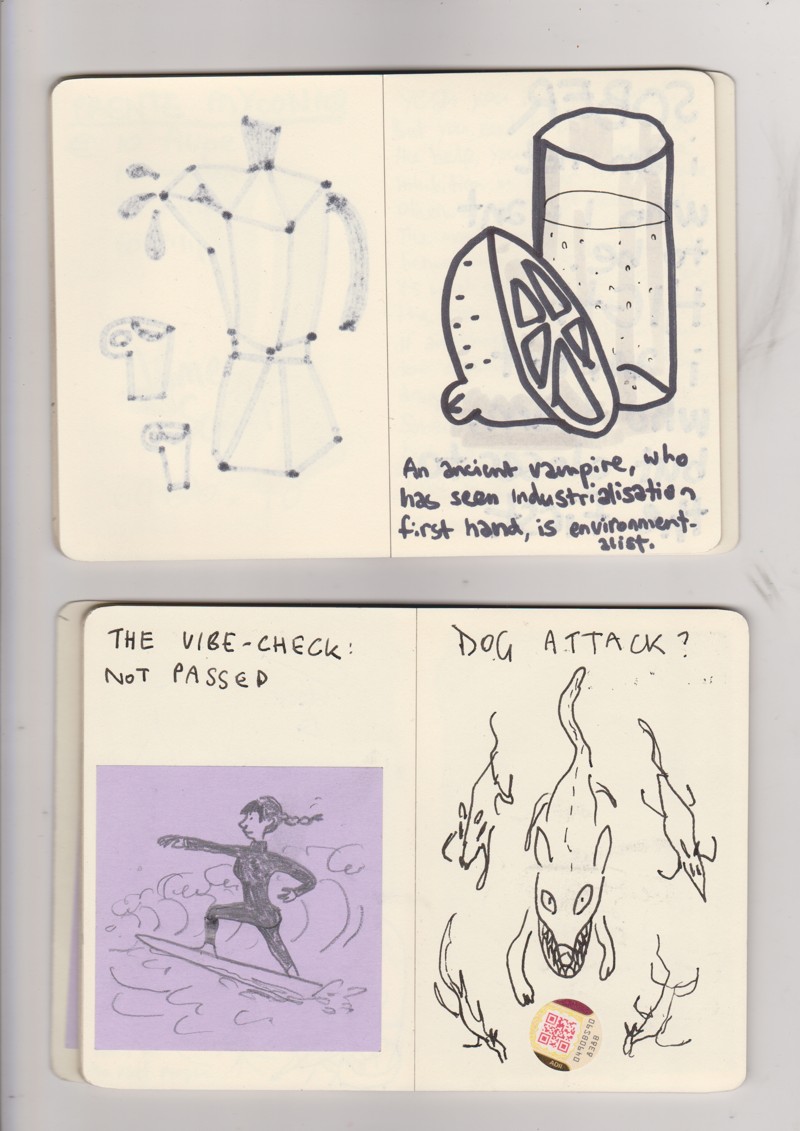 An ancient vampire, who
has seen industrialisation
first hand, is environment-
alist.
THE VIBE-CHECK:
NOT PASSED
DOG ATTACK?